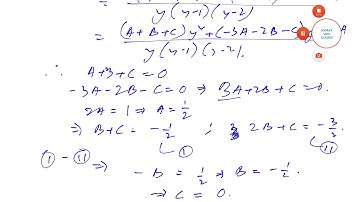 y(y-1)(y-2)
= (A+B+C)y² + (-3A-2B-C)y + 2A
y(y-1)(y-2)
∴ A+B+C=0
-3A-2B-C=0 ⇒ 3A+2B+C=0.
2A=1 ⇒ A=1/2
⇒ B+C = -1/2 ; 2B+C = -3/2
Ⓘ Ⓘⓘ
Ⓘ - Ⓘⓘ ⇒ -B = 1/2 ⇒ B = -1/2.
⇒ C = 0.